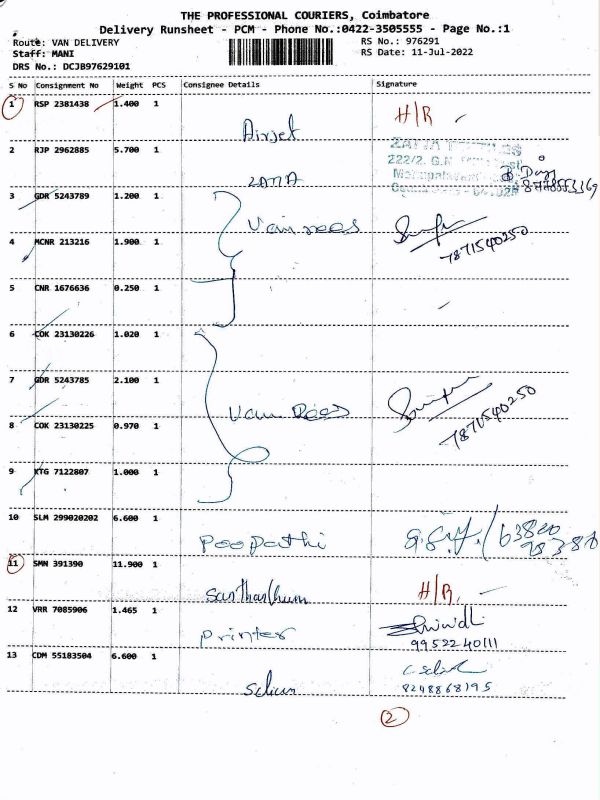 THE PROFESSIONAL COURIERS, Coimbatore
Delivery Runsheet - PCM - Phone No.:0422-3505555 - Page No.:1
Route: VAN DELIVERY
RS No.: 976291
Staff: MANI
RS Date: 11-Jul-2022
DRS No.: DCJB97629101
S No Consignment No Weight PCS Consignee Details Signature
1 RSP 2381438 1.400 1 Airjet H/R
2 RJP 2962885 5.700 1 ZATTA
222/2. G.N.
3 GDR 5243789 1.200 1 Van rees
7871540250
4 MCNR 213216 1.900 1
5 CNR 1676636 0.250 1
6 COK 23130226 1.020 1
7 GDR 5243785 2.100 1 Van Rees
7871540250
8 COK 23130225 0.970 1
9 KTG 7122807 1.000 1
10 SLM 299020202 6.600 1 Poopathi
11 SMN 391390 11.900 1 H/R
12 VRR 7085906 1.465 1 Printer
9952240111
13 CDM 55183504 6.600 1
8248868195
2